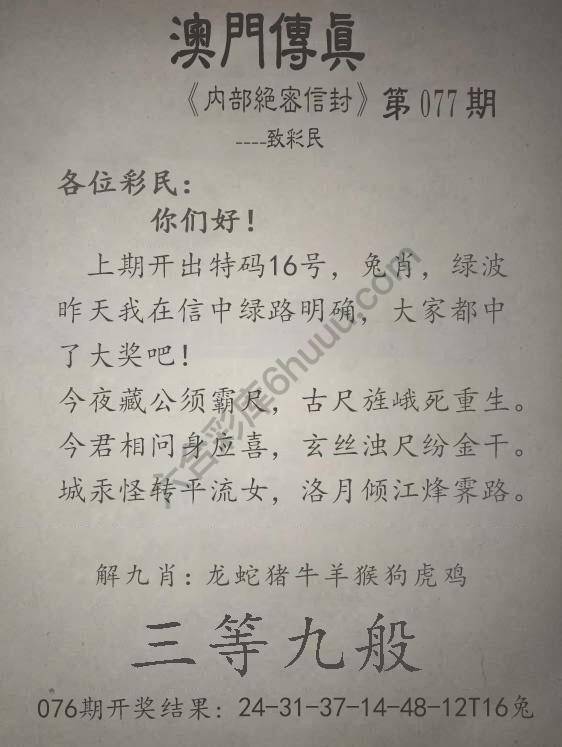 澳門傳真
《内部絕密信封》第077期
----致彩民
各位彩民：
你们好！
上期开出特码16号，兔肖，绿波
昨天我在信中绿路明确，大家都中
了大奖吧！
今夜藏公须霸尺，古尺旌峨死重生。
今君相问身应喜，玄丝浊尺纷金干。
城汞怪转平流女，洛月倾江烽霁路。
解九肖：龙蛇猪牛羊猴狗虎鸡
三等九般
076期开奖结果：24-31-37-14-48-12T16兔
六合彩库6huuu.com